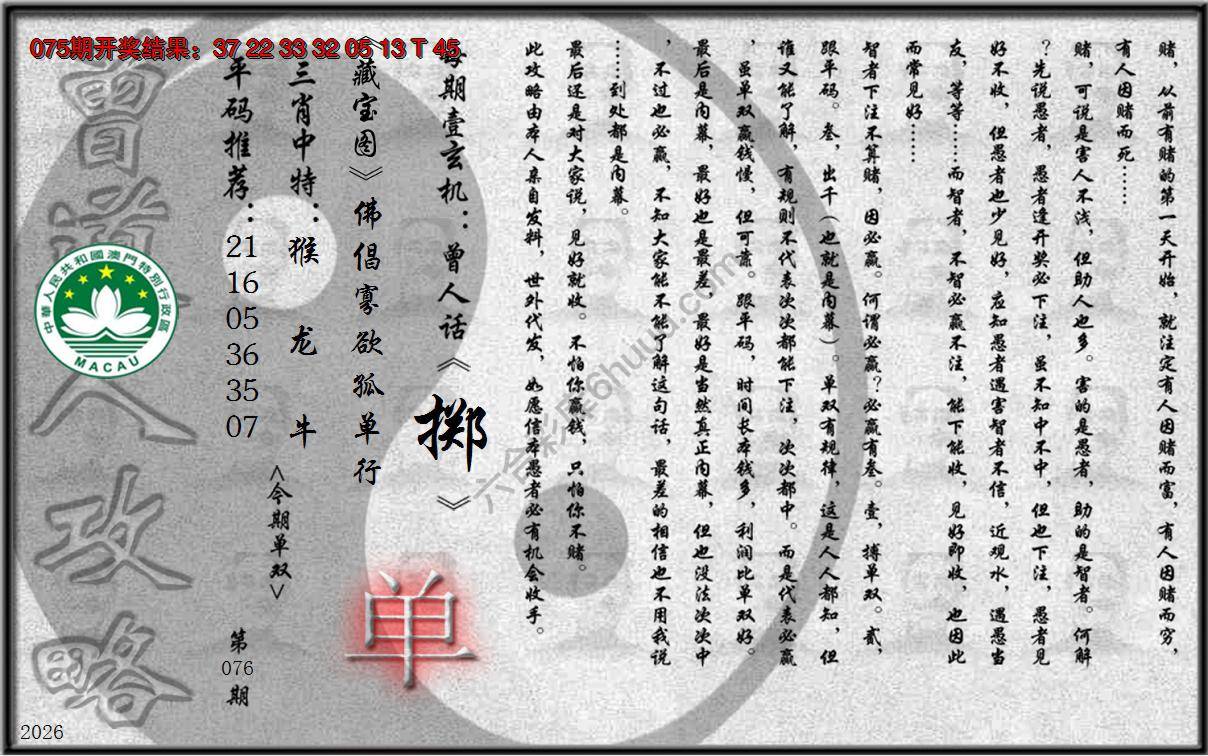 075期开奖结果：37 22 33 32 05 13 T 45
赌，从前有赌的第一天开始，就注定有人因赌而富，有人因赌而穷，
有人因赌而死……
赌，可说是害人不浅，但助人也多。害的是愚者，助的是智者。何解
？先说愚者，愚者逢开奖必下注，虽不知中不中，但也下注，愚者见
好不收，但愚者也少见好，应知愚者遇害智者不信，近观水，遇愚当
友，等等……而智者，不智必赢不注，能下能收，见好即收，也因此
而常见好……
智者下注不算赌，因必赢。何谓必赢？必赢有叁。壹，搏单双。贰，
跟平码。叁，出千（也就是内幕）。单双有规律，这是人人都知，但
谁又能了解，有规则不代表次次都能下注，次次都中。而是代表必赢
，虽单双赢钱慢，但可靠。跟平码，时间长本钱多，利润比单双好。
最后是内幕，最好也是最差，最好是当然真正内幕，但也没法次次中
，不过也必赢，不知大家能不能了解这句话，最差的相信也不用我说
……到处都是内幕。
最后还是对大家说，见好就收。不怕你赢钱，只怕你不赌。
此攻略由本人亲自发料，世外代发，如愿信本愚者必有机会收手。
每期壹玄机：曾人话《掷》
《藏宝图》佛倡寡欲孤单行
三肖中特：猴 龙 牛
<今期单双>
单
平码推荐：
21
16
05
36
35
07
第
076
期
曾道人攻略
中華人民共和國澳門特別行政區
MACAU
2026